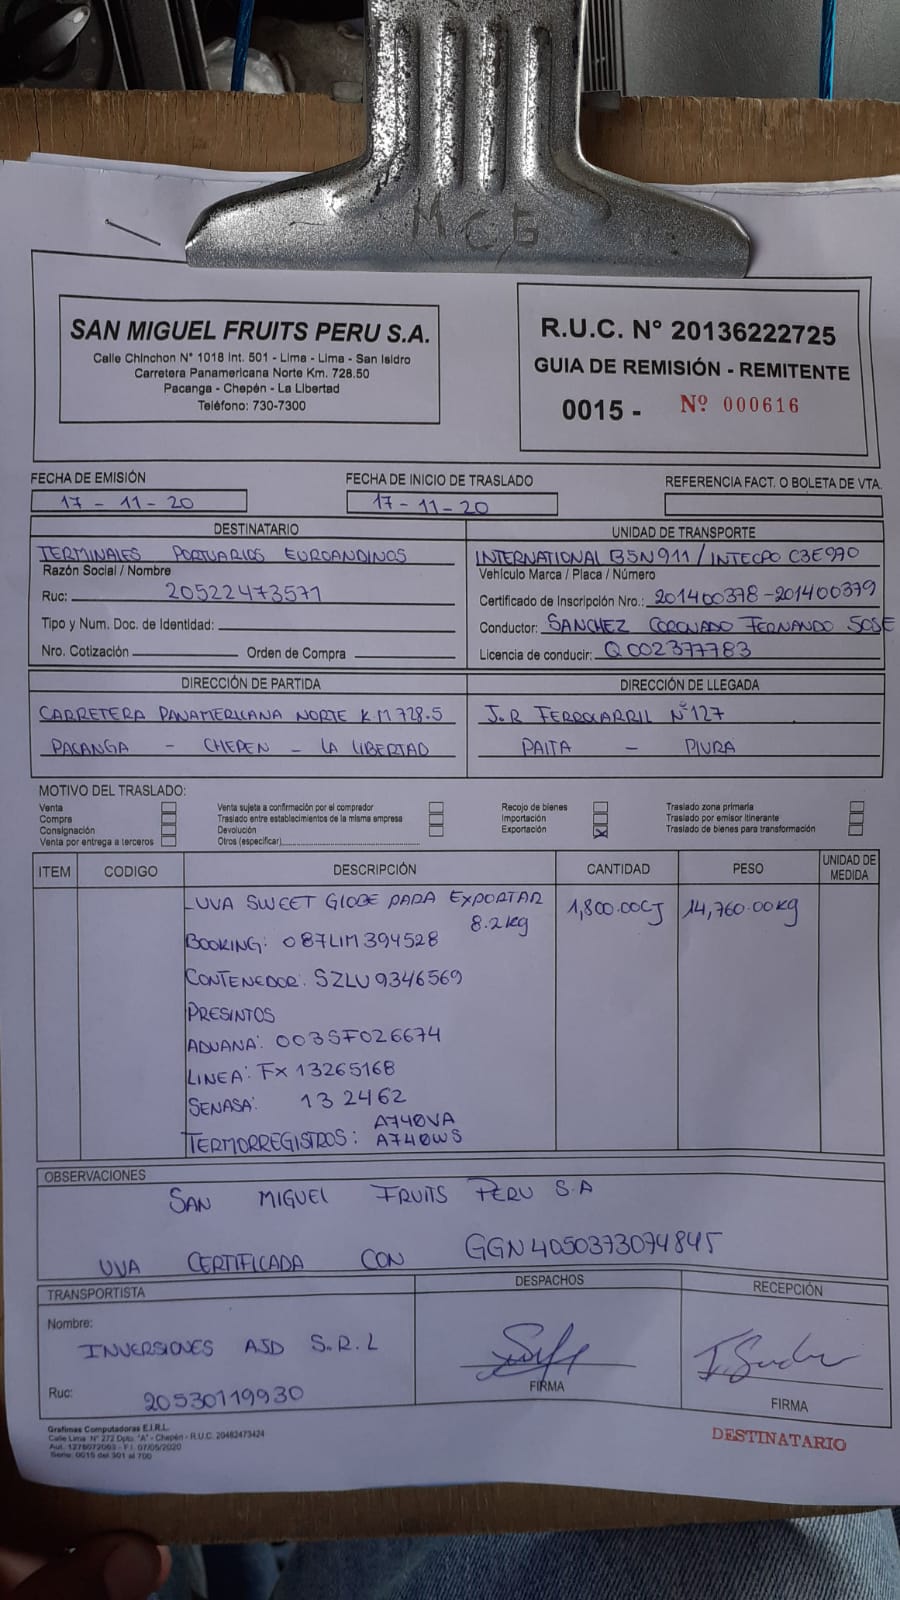 MCG
SAN MIGUEL FRUITS PERU S.A.
Calle Chinchon N° 1018 Int. 501 - Lima - Lima - San Isidro
Carretera Panamericana Norte Km. 728.50
Pacanga - Chepén - La Libertad
Teléfono: 730-7300
R.U.C. N° 20136222725
GUIA DE REMISIÓN - REMITENTE
0015 - Nº 000616
FECHA DE EMISIÓN
17 - 11 - 20
FECHA DE INICIO DE TRASLADO
17 - 11 - 20
REFERENCIA FACT. O BOLETA DE VTA.
DESTINATARIO
TERMINALES PORTUARIOS EUROANDINOS
Razón Social / Nombre
Ruc: 20522473571
Tipo y Num. Doc. de Identidad:
Nro. Cotización Orden de Compra
UNIDAD DE TRANSPORTE
INTERNATIONAL B5N911 / INTECPO C3E970
Vehículo Marca / Placa / Número
Certificado de Inscripción Nro.: 201400378-201400379
Conductor: SANCHEZ CORONADO FERNANDO JOSE
Licencia de conducir: Q002377783
DIRECCIÓN DE PARTIDA
CARRETERA PANAMERICANA NORTE K.M 728.5
PACANGA - CHEPEN - LA LIBERTAD
DIRECCIÓN DE LLEGADA
J.R FERROCARRIL N°127
PAITA - PIURA
MOTIVO DEL TRASLADO:
Venta
Compra
Consignación
Venta por entrega a terceros
Venta sujeta a confirmación por el comprador
Traslado entre establecimientos de la misma empresa
Devolución
Otros (especificar)
Recojo de bienes
Importación
Exportación X
Traslado zona primaria
Traslado por emisor itinerante
Traslado de bienes para transformación
ITEM CODIGO DESCRIPCIÓN CANTIDAD PESO UNIDAD DE MEDIDA
- UVA SWEET GLOBE PARA EXPORTAR 1,800.00CJ 14,760.00kg
8.2kg
BOOKING: 087LIM394528
CONTENEDOR: SZLU9346569
PRESINTOS
ADUANA: 003SF026674
LINEA: FX13265168
SENASA: 132462
TERMORREGISTROS: A740VA
A740WS
OBSERVACIONES
SAN MIGUEL FRUITS PERU S.A
UVA CERTIFICADA CON GGN4050373074845
TRANSPORTISTA
Nombre:
INVERSIONES AJD S.R.L
Ruc: 20530119930
DESPACHOS
FIRMA
RECEPCIÓN
FIRMA
Grafimas Computadoras E.I.R.L.
Calle Lima N° 272 Dpto. "A" - Chepén - R.U.C. 20482473424
Aut. 1276072063 - F.I. 07/05/2020
Serie: 0015 del 301 al 700
DESTINATARIO